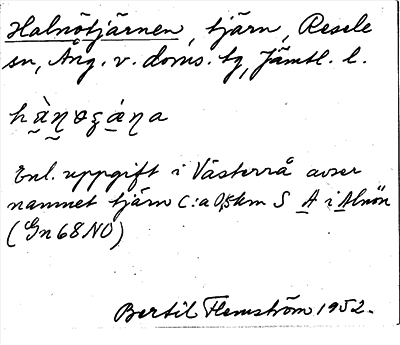 Halnötjärnen, tjärn, Resele
sn, Ång. v. doms. tg, Jämtl. l.
Enl. uppgift i Västerrå avser
namnet tjärn c:a 0,5 km S A i Alnön
(Gn 68 NO)
Bertil Flemström 1952.